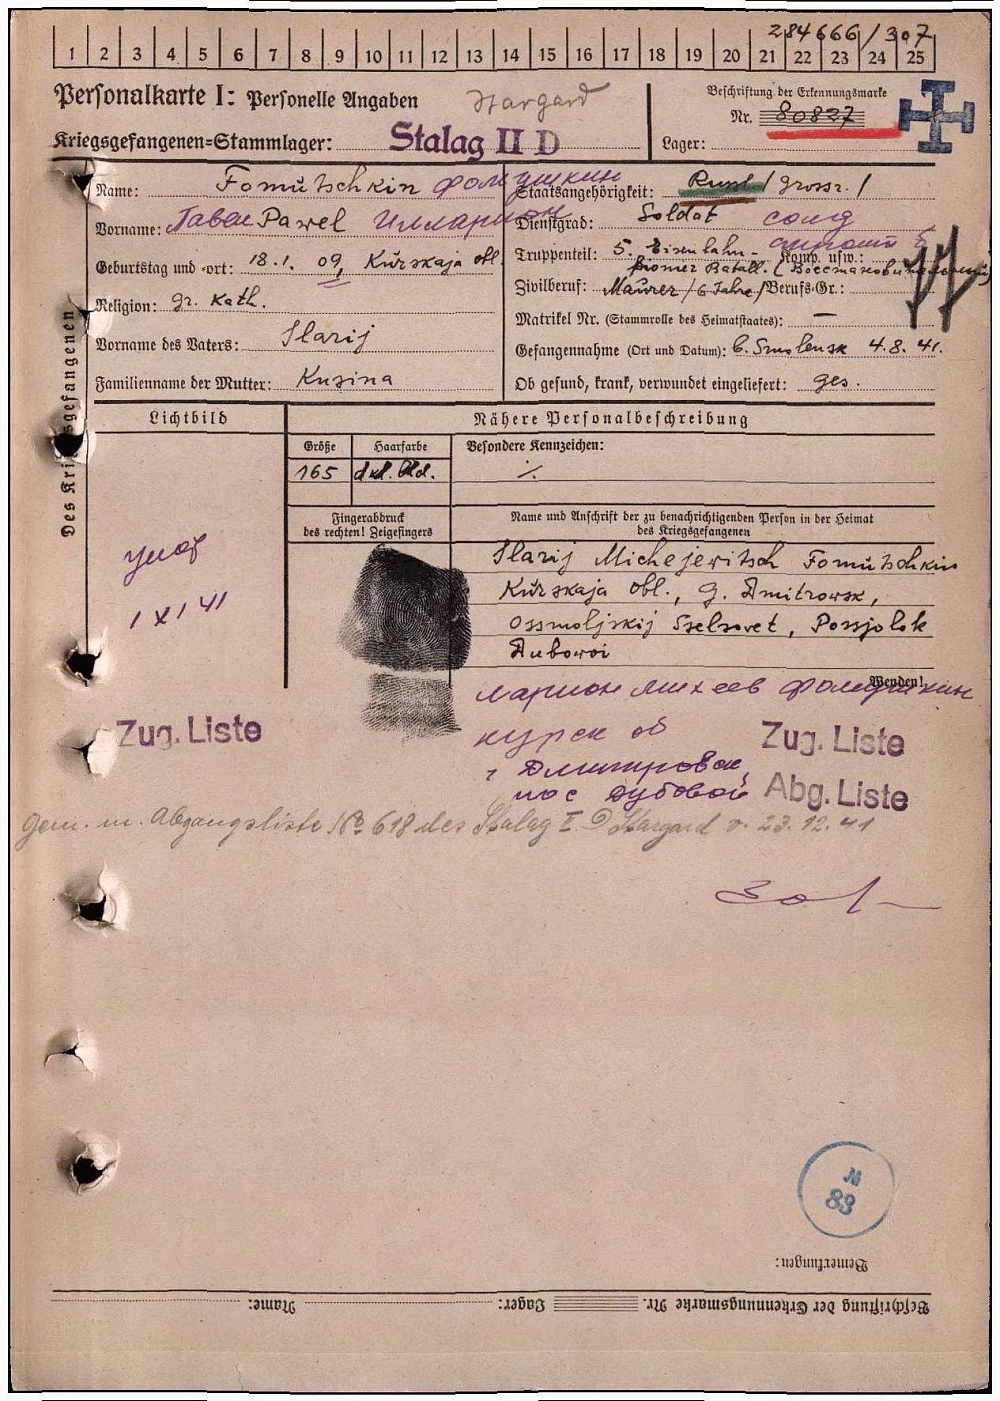 284666/307
1 2 3 4 5 6 7 8 9 10 11 12 13 14 15 16 17 18 19 20 21 22 23 24 25
Personalkarte I: Personelle Angaben
Stargard
Kriegsgefangenen=Stammlager: Stalag II D
Beschriftung der Erkennungsmarke
Nr. 80827
Lager:
Des Kriegsgefangenen
Name: Fomütschkin Фомушкин
Vorname: Павел Pawel Илларион
Geburtstag und -ort: 18.1. 09, Kürskaja obl.
Religion: gr. Kath.
Vorname des Vaters: Ilarij
Familienname der Mutter: Kusina
Staatsangehörigkeit: Russl. / Grossr. /
Dienstgrad: Soldat солд
Truppenteil: 5. Eisenbahn- Komp. usw.:
Pionier Batall. (Восстановительный)
Zivilberuf: Maurer / 6 Jahre / Berufs-Gr.:
Matrikel Nr. (Stammrolle des Heimatstaates): —
Gefangennahme (Ort und Datum): b. Smolensk 4.8.41.
Ob gesund, krank, verwundet eingeliefert: ges.
Lichtbild
Nähere Personalbeschreibung
Größe Haarfarbe Besondere Kennzeichen:
165 dkl. Bld. ·/.
Fingerabdruck
des rechten! Zeigefingers
Name und Anschrift der zu benachrichtigenden Person in der Heimat
des Kriegsgefangenen
Ilarij Michejewitsch Fomütschkin
Kürskaja obl., G. Dmitrowsk,
Ossmoljskij Sselsowet, Possjolok
Dubowoi
1 XI 41
Wenden!
Ларион Михеев Фомушкин
курск об
г Дмитровск,
пос Дубовой
Zug. Liste
Zug. Liste
Abg. Liste
Gem. m. Abgangsliste № 618 des Stalag II D Stargard v. 23.12.41
N
83
Bemerkungen:
Beschriftung der Erkennungsmarke Nr. Lager: Name: